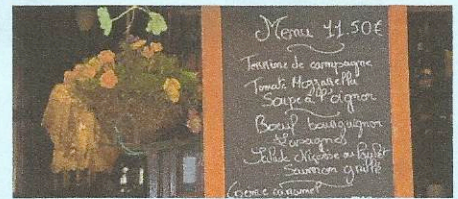 Menu 11.50€
Terrine de campagne
Tomate Mozzarella
Soupe à l'oignon
Boeuf bourguignon
Lasagnes
Salade Niçoise ou Poulet
Saumon grillé
Crème caramel